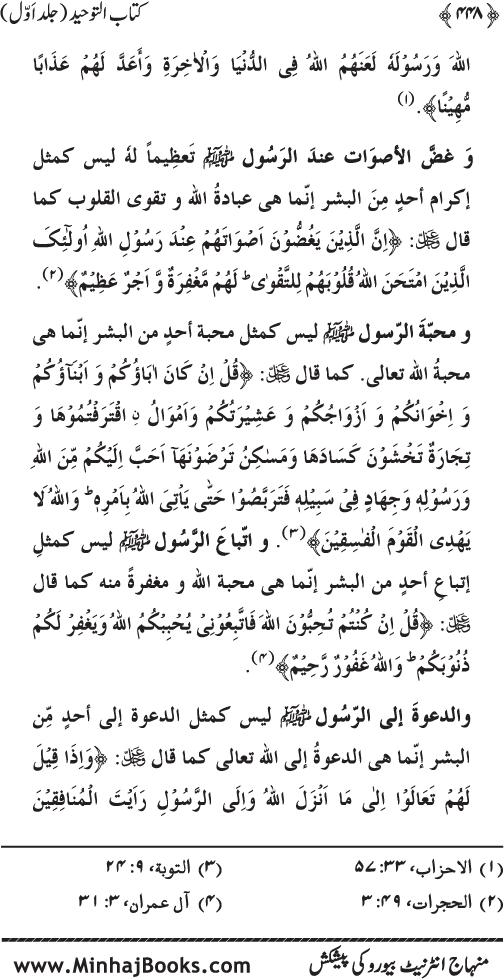 ﴿۴۴۸﴾ کتاب التوحید (جلد اوّل)
اللهَ وَرَسُوْلَهٗ لَعَنَهُمُ اللهُ فِی الدُّنْیَا وَالْاٰخِرَةِ وَأَعَدَّ لَهُمْ عَذَابًا
مُّهِیْنًا﴾.(۱)
وَ غضَّ الأصوَات عندَ الرَسُول ﷺ تَعظِیماً لهٗ لیس کمثل
إکرام أحدٍ مِنَ البشر إنّما هی عبادةُ الله و تقوی القلوب کما
قال ﷻ: ﴿اِنَّ الَّذِیْنَ یَغُضُّوْنَ اَصْوَاتَهُمْ عِنْدَ رَسُوْلِ اللهِ اُولٰٓئِکَ
الَّذِیْنَ امْتَحَنَ اللهُ قُلُوْبَهُمْ لِلتَّقْوٰی ؕ لَهُمْ مَّغْفِرَةٌ وَّ اَجْرٌ عَظِیْمٌ﴾(۲).
و محبّةَ الرّسول ﷺ لیس کمثل محبة أحدٍ من البشر إنّما هی
محبةُ الله تعالی. کما قال ﷻ: ﴿قُلْ اِنْ کَانَ اٰبَاؤُکُمْ وَ اَبْنَآؤُکُمْ
وَ اِخْوَانُکُمْ وَ اَزْوَاجُکُمْ وَ عَشِیْرَتُکُمْ وَاَمْوَالُ نِ اقْتَرَفْتُمُوْهَا وَ
تِجَارَةٌ تَخْشَوْنَ کَسَادَهَا وَمَسٰکِنُ تَرْضَوْنَهَآ اَحَبَّ اِلَیْکُمْ مِّنَ اللهِ
وَرَسُوْلِهٖ وَجِهَادٍ فِیْ سَبِیْلِهٖ فَتَرَبَّصُوْا حَتّٰی یَاْتِیَ اللهُ بِاَمْرِهٖ ؕ وَاللهُ لَا
یَهْدِی الْقَوْمَ الْفٰسِقِیْنَ﴾(۳). و اتّباعَ الرَّسُول ﷺ لیس کمثلِ
إتباعِ أحدٍ من البشر إنّما هی محبة الله و مغفرةً منه کما قال
ﷻ: ﴿قُلْ اِنْ کُنْتُمْ تُحِبُّوْنَ اللهَ فَاتَّبِعُوْنِیْ یُحْبِبْکُمُ اللهُ وَیَغْفِرْ لَکُمْ
ذُنُوْبَکُمْ ؕ وَاللهُ غَفُوْرٌ رَّحِیْمٌ﴾(۴).
والدعوةَ إلی الرّسُول ﷺ لیس کمثل الدعوة إلی أحدٍ مِّن
البشر إنّما هی الدعوةُ إلی الله تعالی کما قال ﷻ: ﴿وَاِذَا قِیْلَ
لَهُمْ تَعَالَوْا اِلٰی مَا اَنْزَلَ اللهُ وَاِلَی الرَّسُوْلِ رَاَیْتَ الْمُنَافِقِیْنَ
(۱) الاحزاب، ۳۳: ۵۷ (۳) التوبة، ۹: ۲۴
(۲) الحجرات، ۴۹: ۳ (۴) آل عمران، ۳: ۳۱
منہاج انٹرنیٹ بیورو کی پیشکش www.MinhajBooks.com